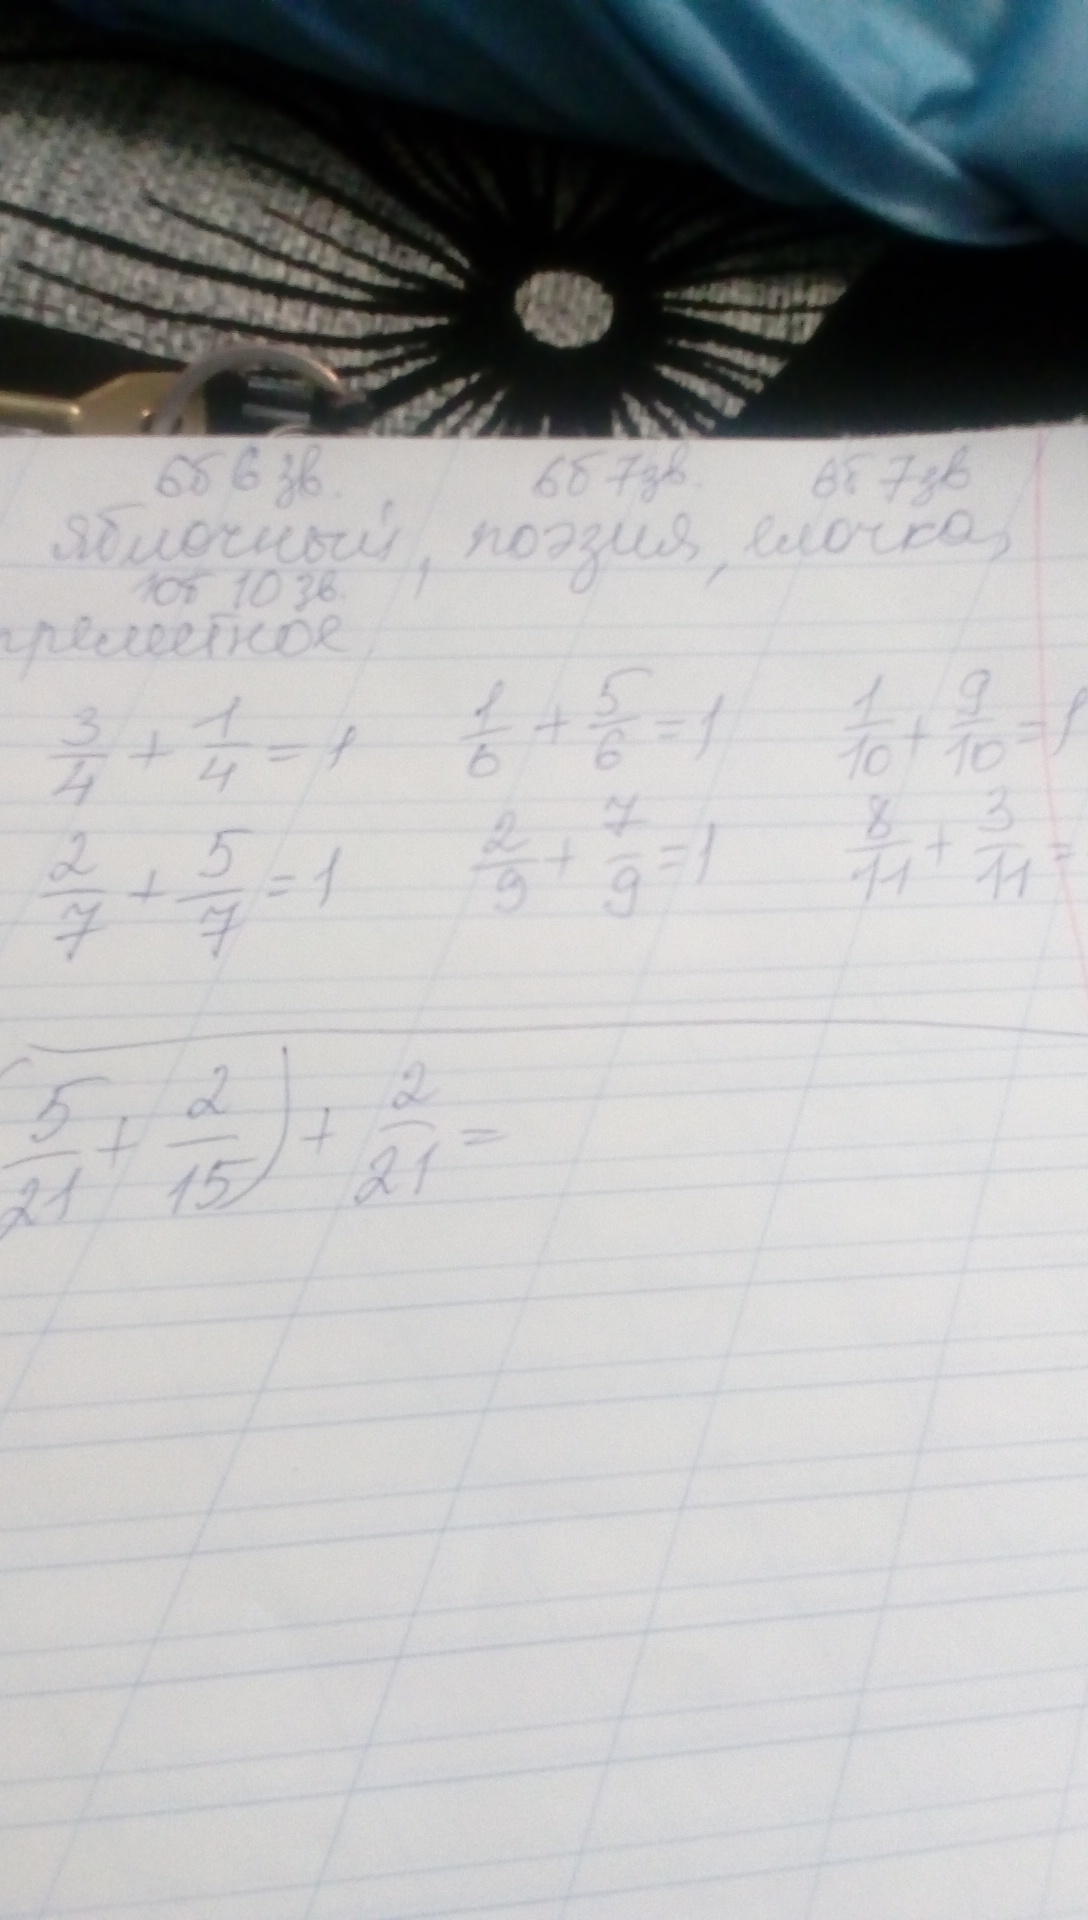 6б 6 зв. 6б 7 зв. 6б 7 зв
яблочный, поэзия, елочка,
10б 10 зв.
прелестное
3/4 + 1/4 = 1 1/6 + 5/6 = 1 1/10 + 9/10 = 1
2/7 + 5/7 = 1 2/9 + 7/9 = 1 8/11 + 3/11 =
(5/21 + 2/15) + 2/21 =